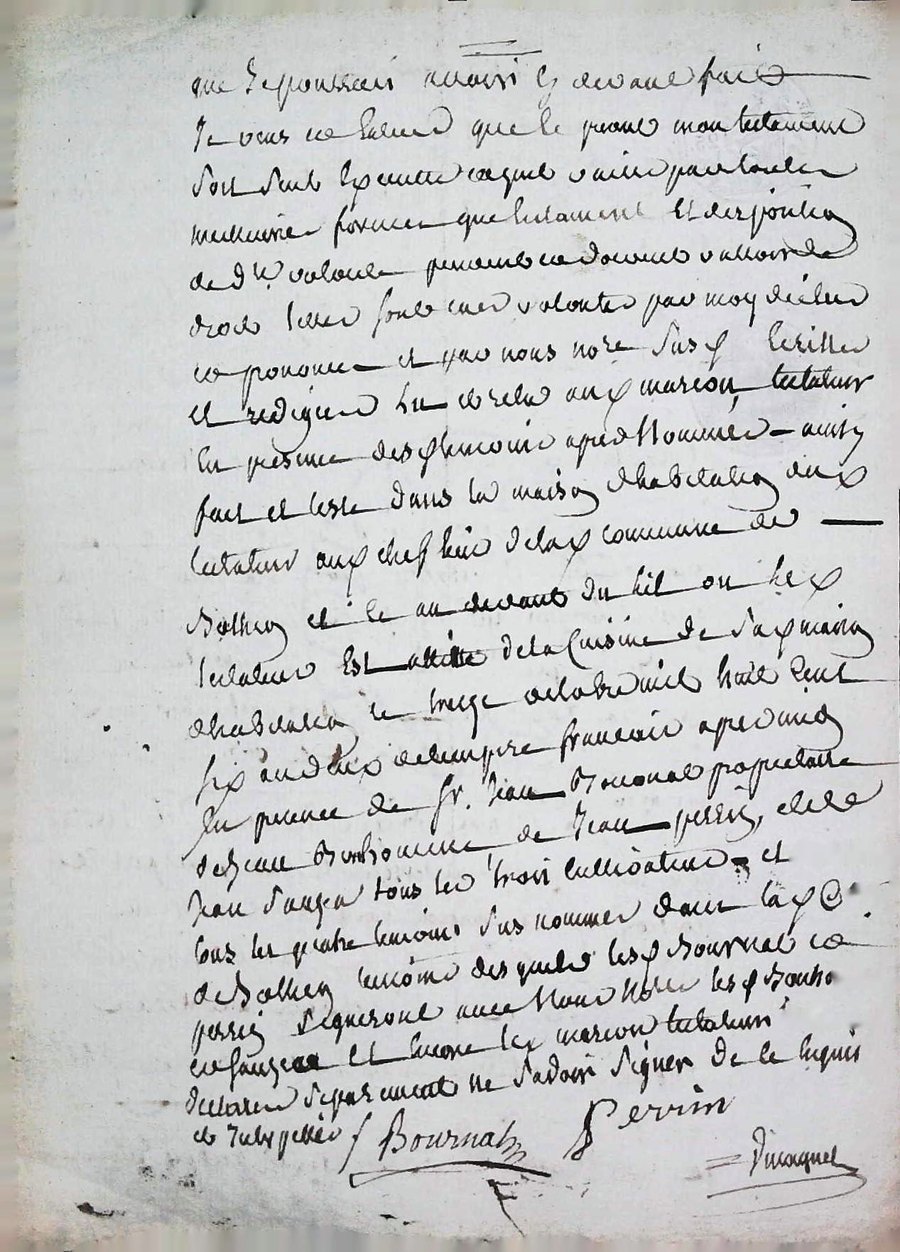 que je pourrais avoir cy devant fait
Je veux et entend que le present mon testament
soit seul execute et quil vaille par toutes
meilleures formes que testament et disposition
de d.re volonte peuvent et doivent valloir de
droit telles sont mes volontes par moy dictees
et prononcee et par nous no.re susd ecrittes
et redigees lu et relu aud marcon testateur
en presence desd temoins apres nommés ainsy
fait et leste dans la maison dhabitation dud
testateur aud chef lieu de lad commune de
Botheon et le au devant du lit ou led
testateur est de la Cuisine de sad maison
dhabitation le treize octobre mil huit cent
six an deux de lempire francais apres midy
en presence de sr. Jean Bournat propriétaire
de Jean Bonhomme de Jean perrin, et de
Jean sauzea tous les trois cultivateurs et
tous les quatre temoins sus nommes dans lad C
de Botheon temoins desquels lesd Bournat et
perrin signeront avec nous no.re lesd Bonho
et sauzea et encore led marcon testateur
declarer separement ne savoir signer de ce requis
et interpellés /
Bournat
Perrin